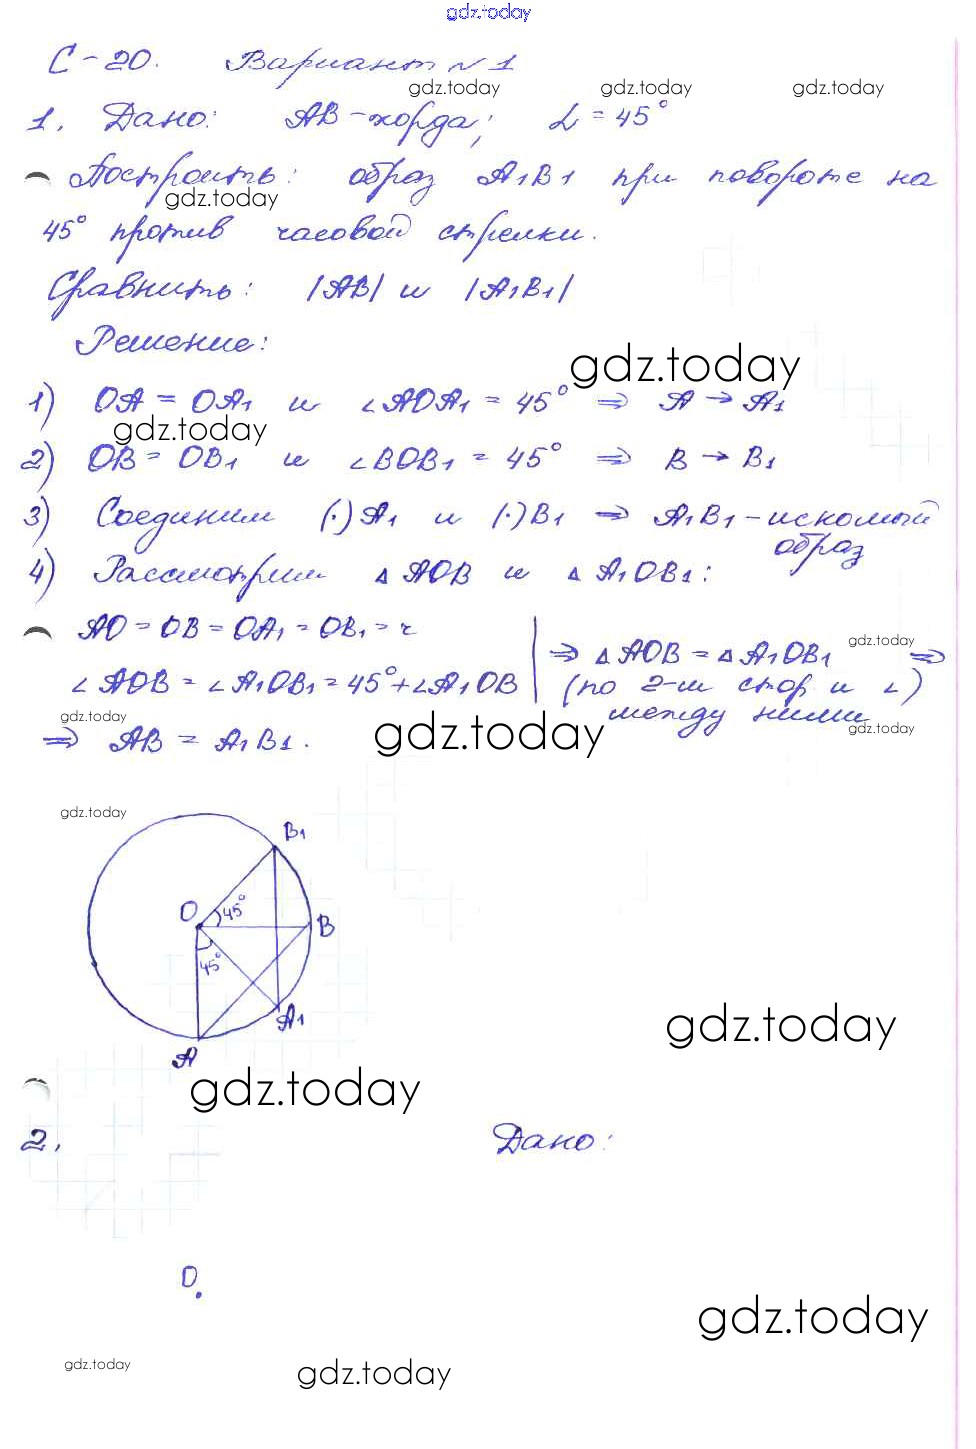 gdz.today
С-20. Вариант №1
gdz.today gdz.today gdz.today
1. Дано: AB-хорда; α = 45°
Построить: образ A₁B₁ при повороте на
gdz.today
45° против часовой стрелки.
Сравнить: |AB| и |A₁B₁|
Решение:
gdz.today
1) OA = OA₁ и ∠AOA₁ = 45° ⇒ A → A₁
gdz.today
2) OB = OB₁ и ∠BOB₁ = 45° ⇒ B → B₁
3) Соединим (·)A₁ и (·)B₁ ⇒ A₁B₁ - искомый
образ
4) Рассмотрим ΔAOB и ΔA₁OB₁:
AO = OB = OA₁ = OB₁ = r
gdz.today
∠AOB = ∠A₁OB₁ = 45° + ∠A₁OB
⇒ ΔAOB = ΔA₁OB₁ ⇒
(по 2-м стор и ∠)
между ними
gdz.today gdz.today gdz.today
⇒ AB = A₁B₁.
gdz.today
B₁
O 45° B
45°
A₁
A
gdz.today
gdz.today
2. Дано:
O
gdz.today
gdz.today gdz.today